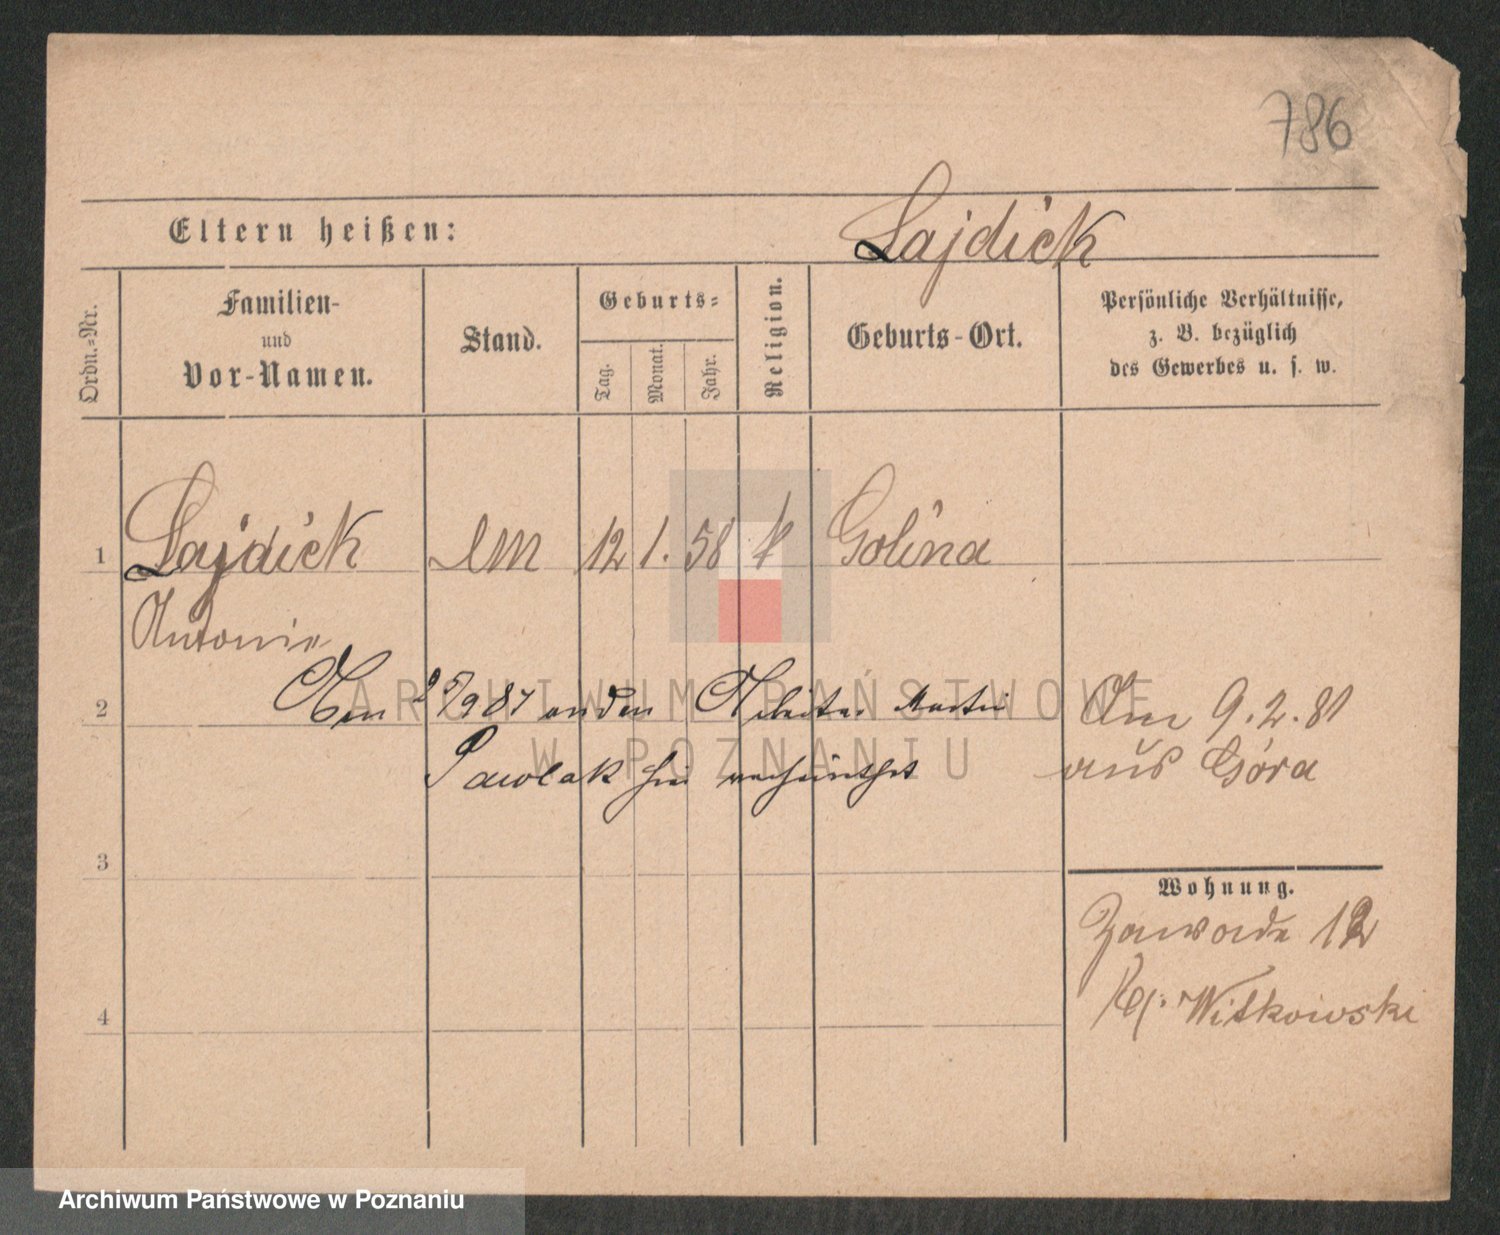 786
Eltern heißen:
Lajdick
Ordn.-Nr.
Familien-
und
Vor-Namen.
Stand.
Geburts-
Tag.
Monat.
Jahr.
Religion.
Geburts-Ort.
Persönliche Verhältnisse,
z. B. bezüglich
des Gewerbes u. s. w.
1 Lajdick 12 1. 58 k Golina
Antonie
2 25/9 87 an den Arbeiter Martin
Pawlak hier verheirathet
Am 9.2.81
aus Góra
3
Wohnung.
Zawade 12
Witkowski
4
ARCHIWUM PAŃSTWOWE
W POZNANIU
Archiwum Państwowe w Poznaniu